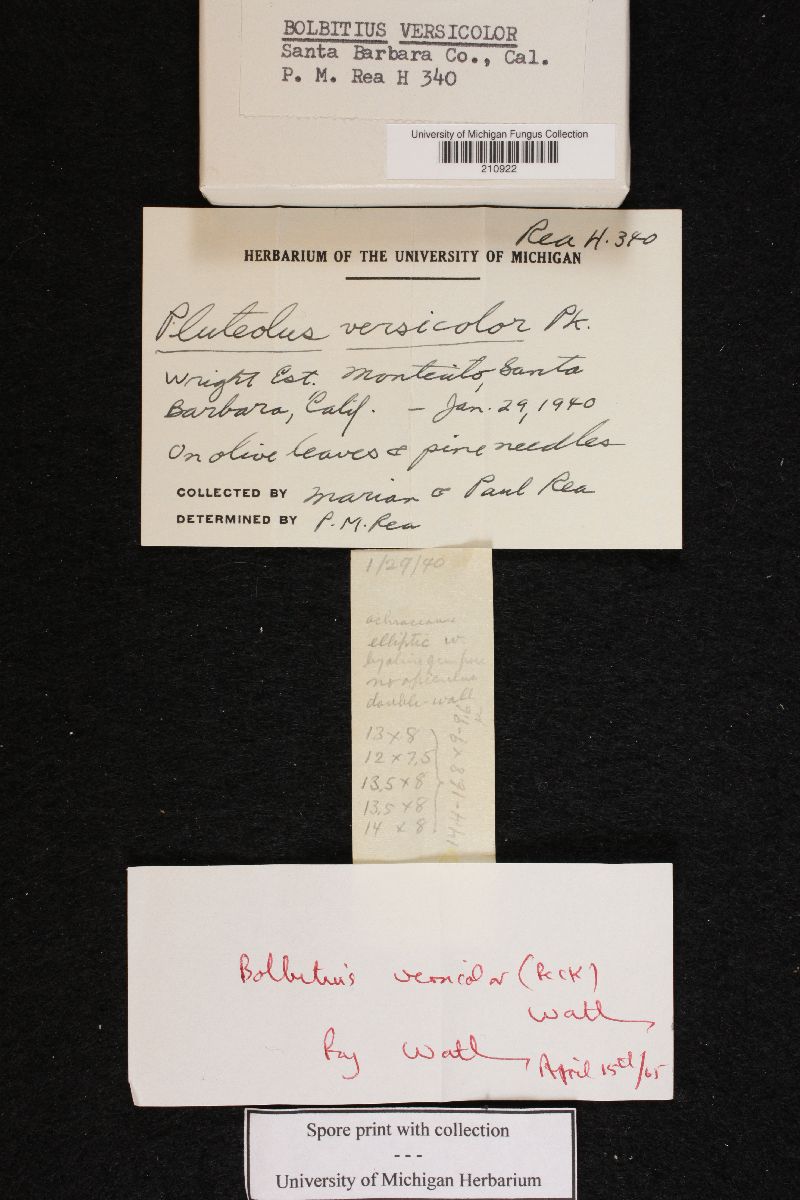 BOLBITIUS VERSICOLOR
Santa Barbara Co., Cal.
P. M. Rea H 340
University of Michigan Fungus Collection
210922
Rea H. 340
HERBARIUM OF THE UNIVERSITY OF MICHIGAN
Pluteolus versicolor Pk.
Wright Est. Montecito, Santa
Barbara, Calif. – Jan. 29, 1940
On olive leaves & pine needles
COLLECTED BY Marian & Paul Rea
DETERMINED BY P. M. Rea
1/29/40
ochraceous
elliptic w.
hyaline germ pore
no apiculus
double-wall
13 x 8
12 x 7.5
13.5 x 8
13.5 x 8
14 x 8
14.4-16.8 x 9-9.6
Bolbitius versicolor (Peck)
Watl
Roy Watl April 15th/65
Spore print with collection
- - -
University of Michigan Herbarium